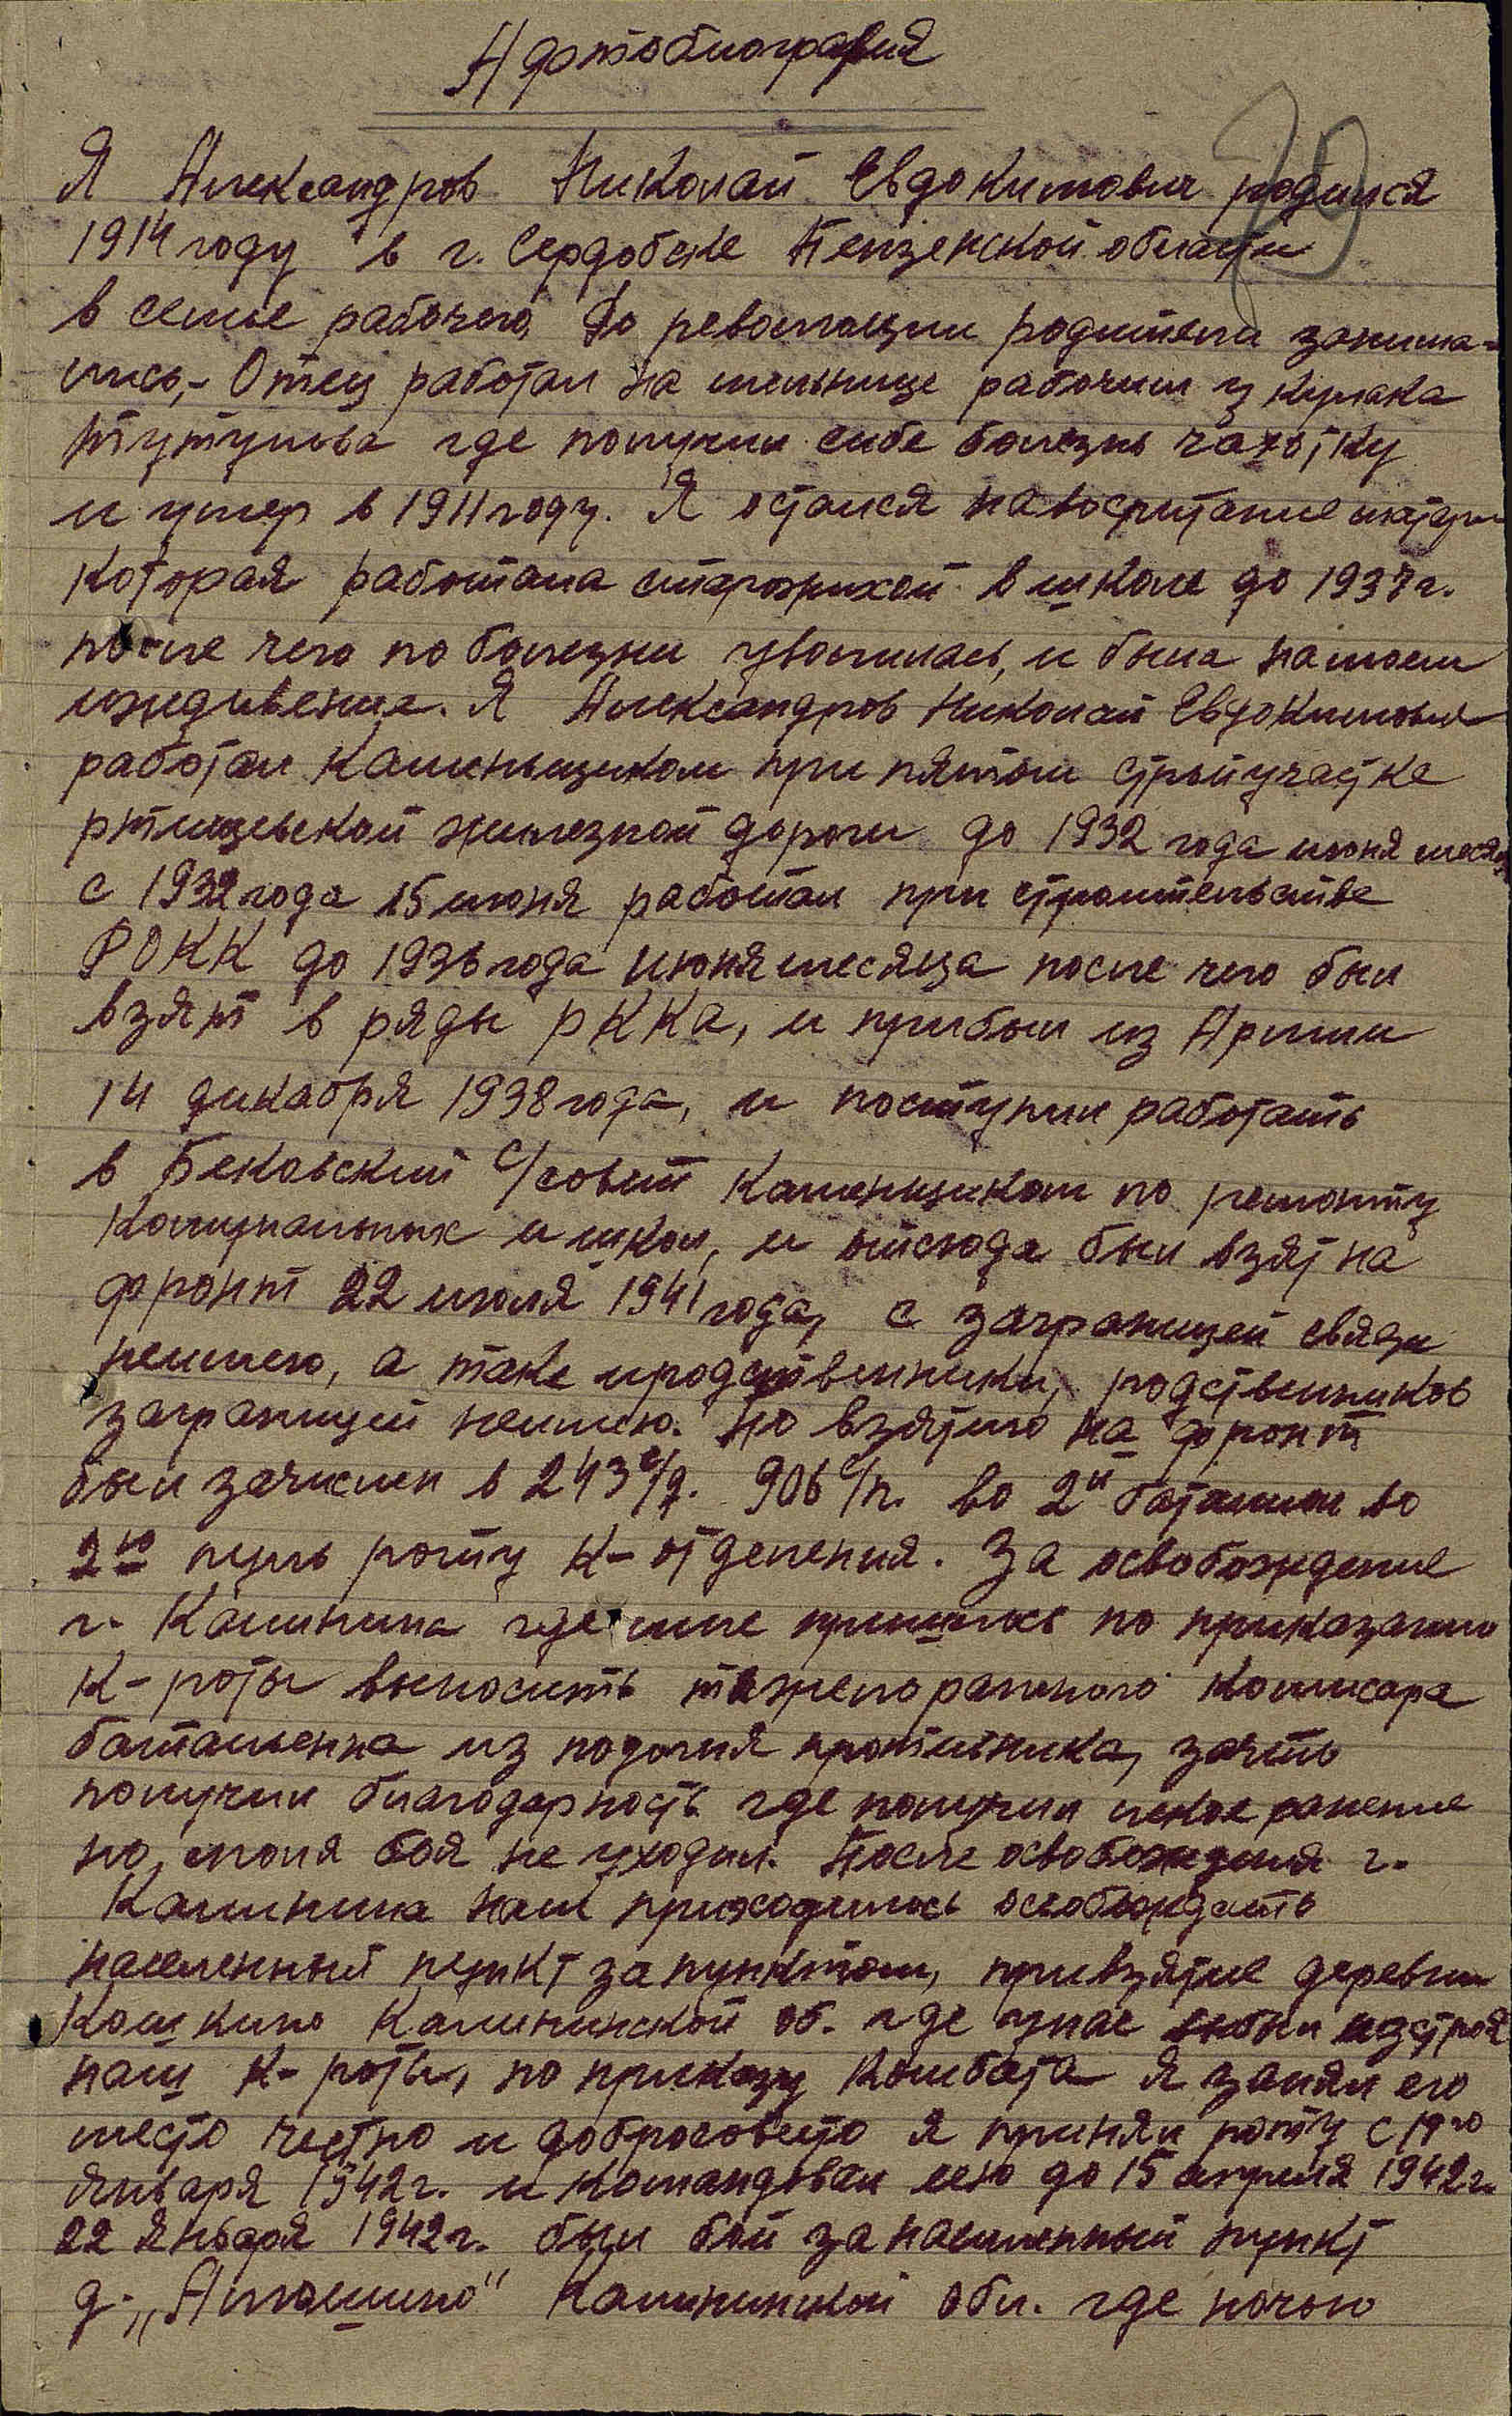 Афтобиография
Я Александров Николай Евдокимович родился
1914 году в г. Сердобске Пензенской области
в семье рабочего, До революции родители занима-
лись,- Отец работал на мельнице рабочим у кулака
где получил себе болезнь чахотку
и умер в 1911 году. Я остался на воспитание матери
которая работала сторожихой в школе до 1937 г.
после чего по болезни уволилась, и была на моем
иждивение. Я Александров Николай Евдокимович
работал каменьщиком при пятом стройучастке
ртищевской железной дороги до 1932 года июня месяц
с 1932 года 15 июня работал при строительстве
РОКК до 1936 года июня месяца после чего был
взят в ряды РККА, и прибыл из Армии
14 дикабря 1938 года, и поступил работать
в Бековский с/совет каменщиком по ремонту
комунальных и школ, и отсюда был взят на
фронт 22 июля 1941 года, с заграницей связи
неимею, а таке и родственники, родственников
заграницей неимею. По взятию на фронт
был зачислен в 243 с/д. 906 с/п. во 2й баталион во
2ю пуль роту К-отделения. За освобождение
г. Калинина где мне пришлось по приказанию
К-роты выносить тяжело раненого комисара
батальенна из подогня противника, зачто
получил благодарность где получил легкое ранение
но споля боя не уходил. После освобождения г.
Калинина нам приходилось освобождать
населенный пункт за пунктом, привзятие деревни
Кошкино Калининской об. где унас выбыл изстроя
наш К-роты, по приказу Комбата я занял его
место честно и добросовесто я принял роту с 19го
января 1942 г. и командовал ею до 15 апреля 1942 г.
22 января 1942 г. был бой за населенный пункт
д. „ Калининской обл. где ночью